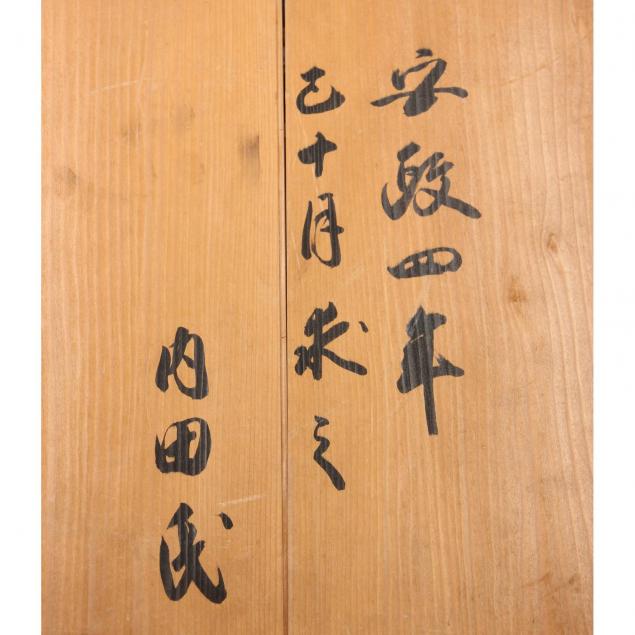 安政四年
巳十月求之
内田氏